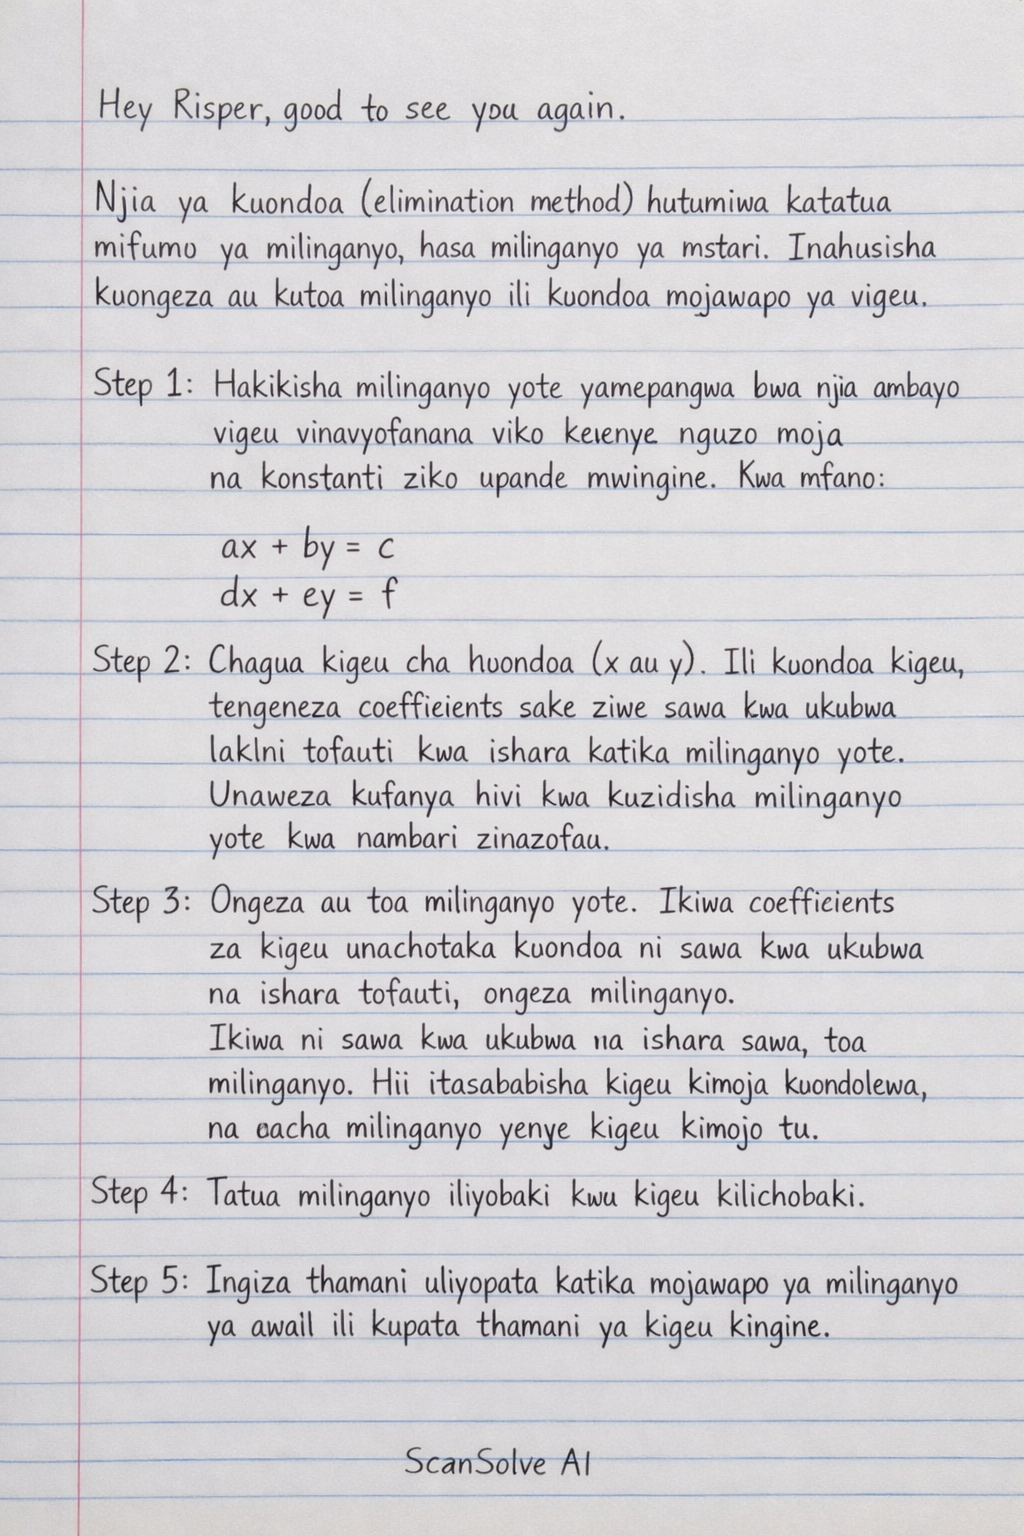 Hey Risper, good to see you again.
Njia ya kuondoa (elimination method) hutumiwa katatua
mifumo ya milinganyo, hasa milinganyo ya mstari. Inahusisha
kuongeza au kutoa milinganyo ili kuondoa mojawapo ya vigeu.
Step 1: Hakikisha milinganyo yote yamepangwa bwa njia ambayo
vigeu vinavyofanana viko keıenye nguzo moja
na konstanti ziko upande mwingine. Kwa mfano:
ax + by = c
dx + ey = f
Step 2: Chagua kigeu cha huondoa (x au y). Ili kuondoa kigeu,
tengeneza coeffieients sake ziwe sawa kwa ukubwa
laklni tofauti kwa ishara katika milinganyo yote.
Unaweza kufanya hivi kwa kuzidisha milinganyo
yote kwa nambari zinazofau.
Step 3: Ongeza au toa milinganyo yote. Ikiwa coeffieients
za kigeu unachotaka kuondoa ni sawa kwa ukubwa
na ishara tofauti, ongeza milinganyo.
Ikiwa ni sawa kwa ukubwa na ishara sawa, toa
milinganyo. Hii itasababisha kigeu kimoja kuondolewa,
na eacha milinganyo yenye kigeu kimojo tu.
Step 4: Tatua milinganyo iliyobaki kwu kigeu kilichobaki.
Step 5: Ingiza thamani uliyopata katika mojawapo ya milinganyo
ya awail ili kupata thamani ya kigeu kingine.
ScanSolve AI